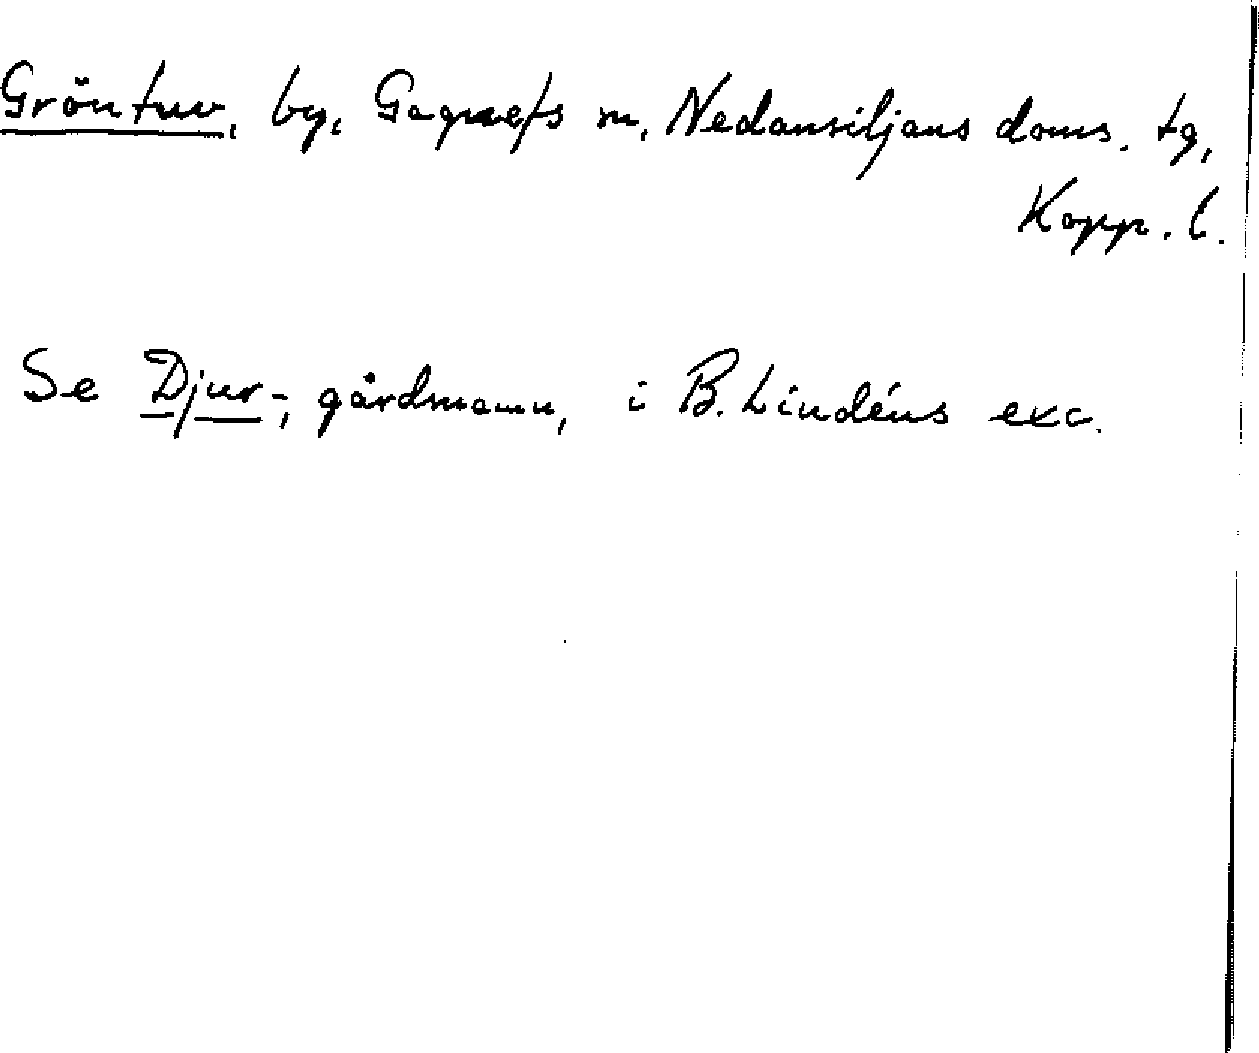 Gröntuv, by, Gagnefs sn, Nedansiljans doms. tg,
Kopp. l.
Se Djur-, gårdnamn, i B. Lindéns exc.